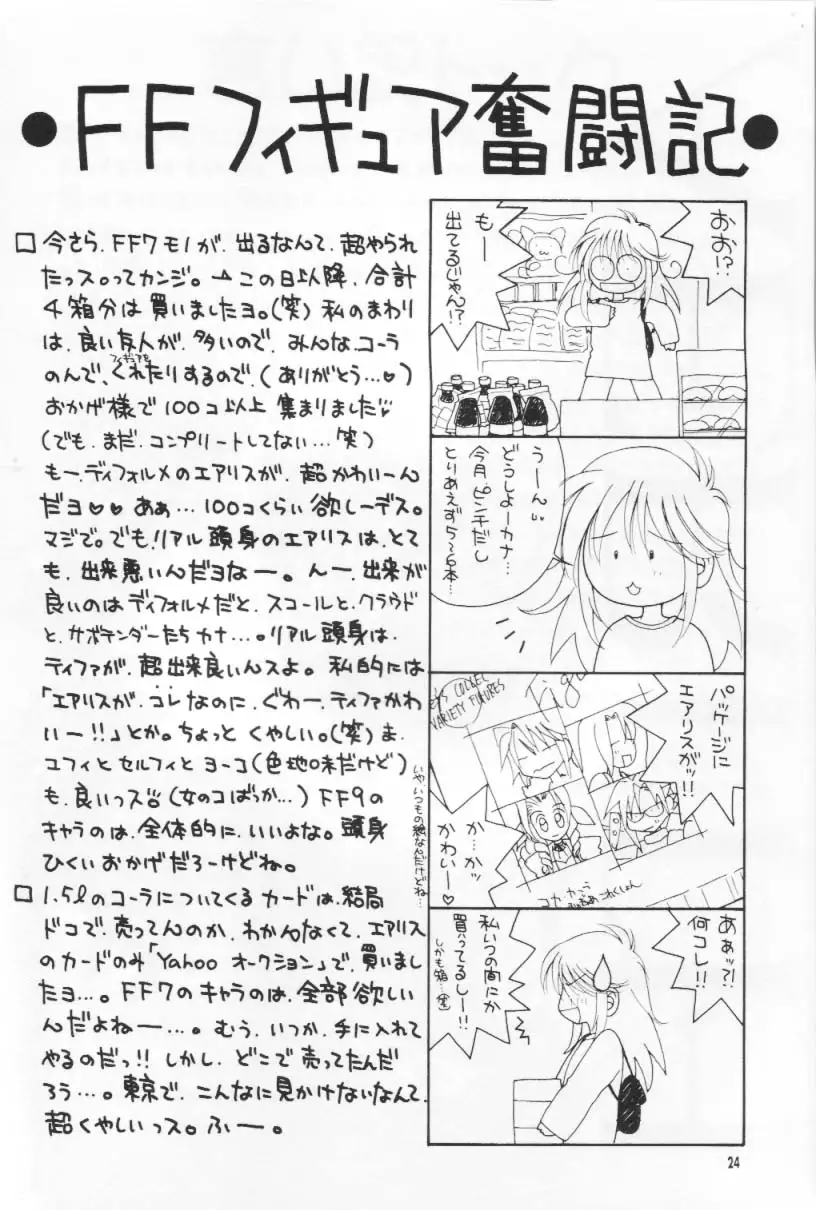 ●FFフィギュア奮闘記●
□今さら、FF7モノが、出るなんて、超やられ
たっス。ってカンジ。→この日以降、合計
4箱分は買いましたヨ。(笑)私のまわり
は、良い友人が、多いので、みんな、コーラ
のんで、フィギュアをくれたりするので、(ありがとう…♡)
おかげ様で100コ以上集まりました
(でも、まだ、コンプリートしてない…笑)
もー、ディフォルメのエアリスが、超かわいーん
だヨ♡♡あぁ…100コくらい欲しーデス。
マジで。でも、リアル頭身のエアリスは、とて
も、出来悪いんだヨなー。んー、出来が
良いのはディフォルメだと、スコールと、クラウド
と、サボテンダーたちカナ…。リアル頭身は、
ティファが、超出来良いんスよ。私的には
「エアリスが、コレなのに、ぐわー、ティファかわ
いー!!」とか。ちょっとくやしい。(笑)ま、
ユフィとセルフィとヨーコ(色地味だけど)
も、良いっス(女のコばっか…)FF9の
キャラのは、全体的に、いいよな。頭身
ひくいおかげだろーけどね。
□1.5ℓのコーラについてくるカードは、結局
ドコで、売ってんのか、わかんなくて、エアリス
のカードのみ「Yahooオークション」で、買いまし
たヨ…。FF7のキャラのは、全部欲しい
んだよねー…。むう、いつか、手に入れて
やるのだっ!!しかし、どこで売ってたんだ
ろう…。東京で、こんなに見かけないなんて、
超くやしいっス。ふー。
おお!?
もー
出てるじゃん!?
うーん
どうしよーカナ…
今月、ピンチだし
とりあえず5〜6本…
パッケージに
エアリスがッ!!
VARIETY FIGURES
か…かッ
かわいー♡
いや、いつもの絵なんだけどね…
あぁッ?!
何コレ!!
私いつの間にか
買ってるしー!!
しかも箱…(笑)
24